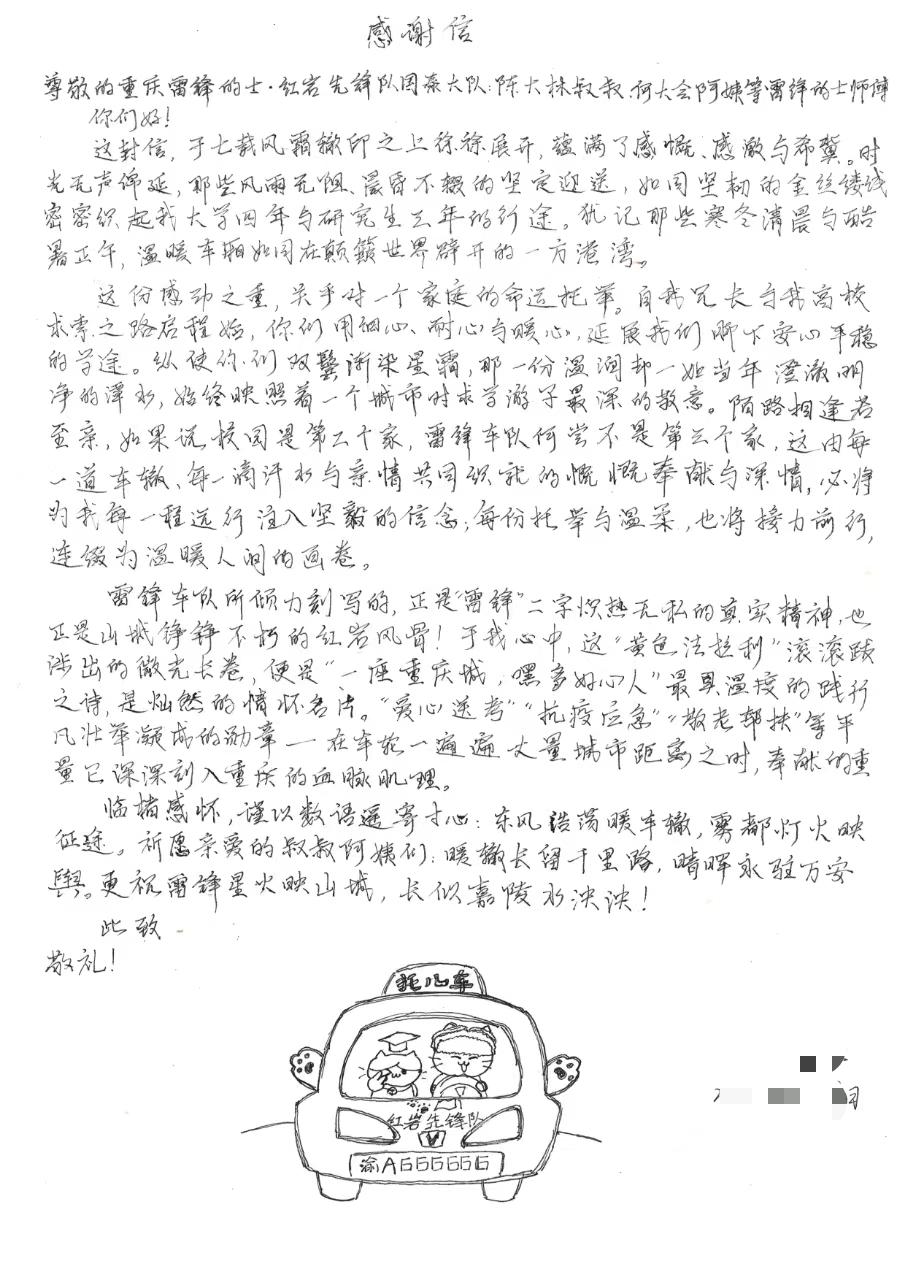 感谢信
尊敬的重庆雷锋的士·红岩先锋队国泰大队:陈大林叔叔、何大会阿姨等雷锋的士师傅
你们好!
这封信,于七载风霜辙印之上徐徐展开,蕴满了感慨、感激与希冀。时
光无声绵延,那些风雨无阻、晨昏不辍的坚定迎送,如同坚韧的金丝缕线
密密织起我大学四年与研究生三年的行途。犹记那些寒冬清晨与酷
暑正午,温暖车厢如同在颠簸世界辟开的一方港湾。
这份感动之重,关乎对一个家庭的命运托举。自我兄长与我高校
求索之路启程始,你们用细心、耐心与暖心,延展我们脚下安心平稳
的学途。纵使你们双鬓渐染星霜,那一份温润却一如当年澄澈明
净的泽水,始终映照着一个城市对求学游子最深的敬意。陌路相逢若
至亲,如果说校园是第二个家,雷锋车队何尝不是第三个家,这由每
一道车辙、每一滴汗水与亲情共同织就的慨慷奉献与深情,必将
为我每一程远行注入坚毅的信念;每份托举与温柔,也将接力前行,
连缀为温暖人间的画卷。
雷锋车队所倾力刻写的,正是“雷锋”二字炽热无私的真实精神,也
正是山城铮铮不朽的红岩风骨!于我心中,这“黄色法拉利”滚滚跋
涉出的微光长卷,便是“一座重庆城,嘿多好心人”最具温度的践行
之诗,是灿然的情怀名片。“爱心送考”“抗疫应急”“敬老帮扶”等平
凡壮举凝成的勋章——在车轮一遍遍丈量城市距离之时,奉献的重
量已深深刻入重庆的血脉肌理。
临楮感怀,谨以数语遥寄寸心:东风浩荡暖车辙,雾都灯火映
征途。祈愿亲爱的叔叔阿姨们:暖辙长留千里路,晴晖永驻万安
舆。更祝雷锋星火映山城,长似嘉陵水泱泱!
此致
敬礼!
托心车
红岩先锋队
渝A66666G